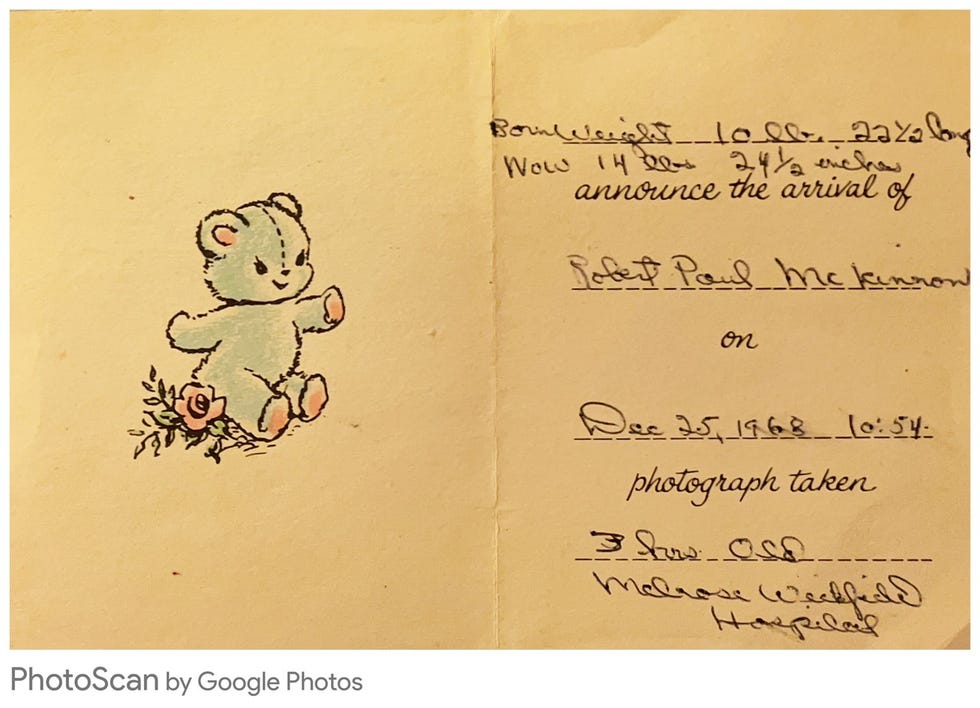 Born Weight 10 lb. 22½ long
Now 14 lbs 24½ inches
announce the arrival of
Robert Paul McKinnon
on
Dec 25, 1968 10:54.
photograph taken
3 hrs. Old
Melrose Wakefield
Hospital
PhotoScan by Google Photos